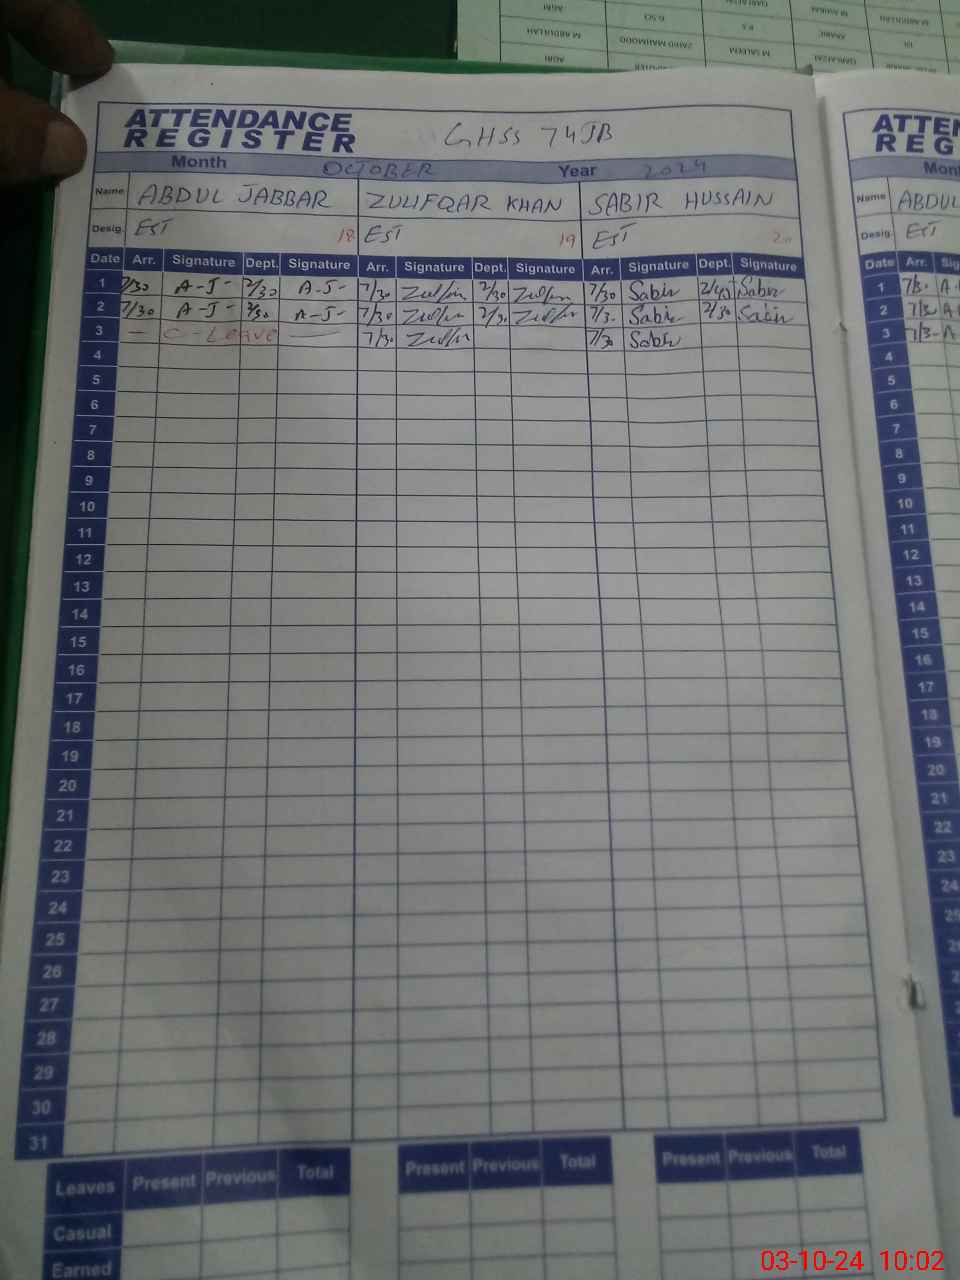 ATTENDANCE
REGISTER
GHSS 74JB
Month OCTOBER Year 2024
Name ABDUL JABBAR ZULIFQAR KHAN SABIR HUSSAIN
Desig. EST 18 EST 19 EST
Date Arr. Signature Dept. Signature Arr. Signature Dept. Signature Arr. Signature Dept. Signature
1 7/30 A-J- 2/30 A-J- 7/30 2/30 7/30 Sabir Sabir
2 7/30 A-J- 2/30 A-J- 7/30 2/30 7/3- Sabir 2/30 Sabir
3 — C-Leave — 7/30 7/30 Sabir
4
5
6
7
8
9
10
11
12
13
14
15
16
17
18
19
20
21
22
23
24
25
26
27
28
29
30
31
Leaves Present Previous Total Present Previous Total Present Previous Total
Casual
Earned
ATTEN
REG
Mon
Name ABDUL
Desig. EST
Date Arr. Sig
1 7/3- A
2 7/3- A
3 7/3- A
4
5
6
7
8
9
10
11
12
13
14
15
16
17
18
19
20
21
22
23
24
AGRI
M ABDULLAH
AGRI
B.SCI
ZAHID MAHMOOD
P.S
M SALEEM
ARABIC
M ABDULLAH
03-10-24 10:02